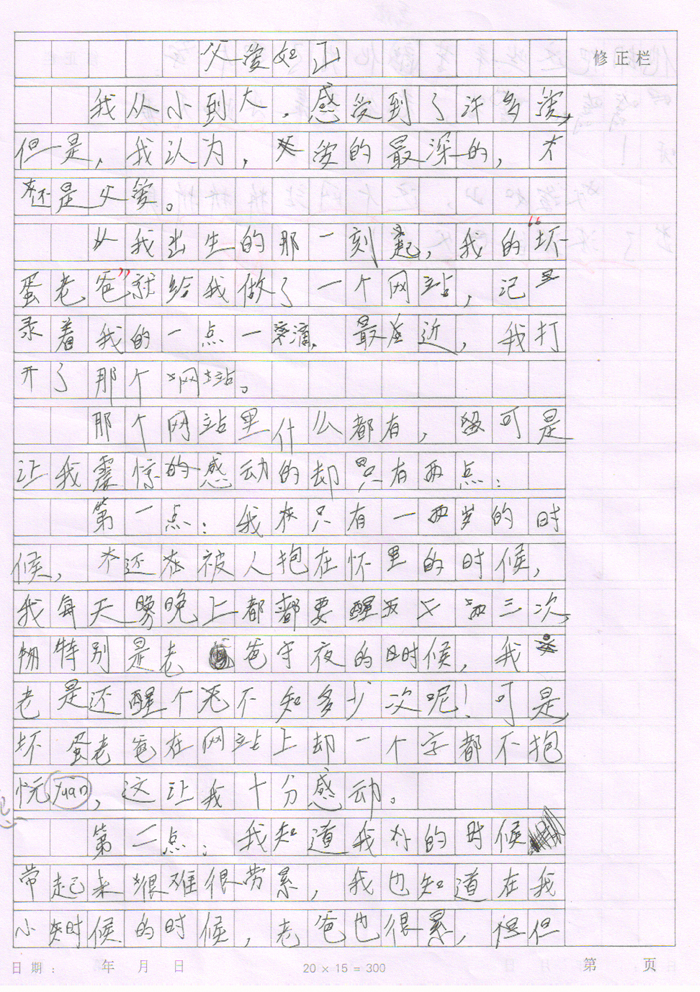 父爱如山
修正栏
我从小到大，感受到了许多爱，
但是，我认为，爱的最深的，
还是父爱。
从我出生的那一刻起，我的“坏
蛋老爸”就给我做了一个网站，记
录着我的一点一滴，最近，我打
开了那个网站。
那个网站里什么都有，可是
让我震惊的感动的却只有两点：
第一点：我在只有一两岁的时
候，还在被人抱在怀里的时候，
我每天晚上都要醒两三次，
特别是老爸守夜的时候，我
老是还醒个不知多少次呢！可是，
坏蛋老爸在网站上却一个字都不抱
yuan，这让我十分感动。
第二点：我知道我小的时候
带起来很难很劳累，我也知道在我
小时候的时候，老爸也很累，但
日期： 年 月 日 20 × 15 = 300 第 页